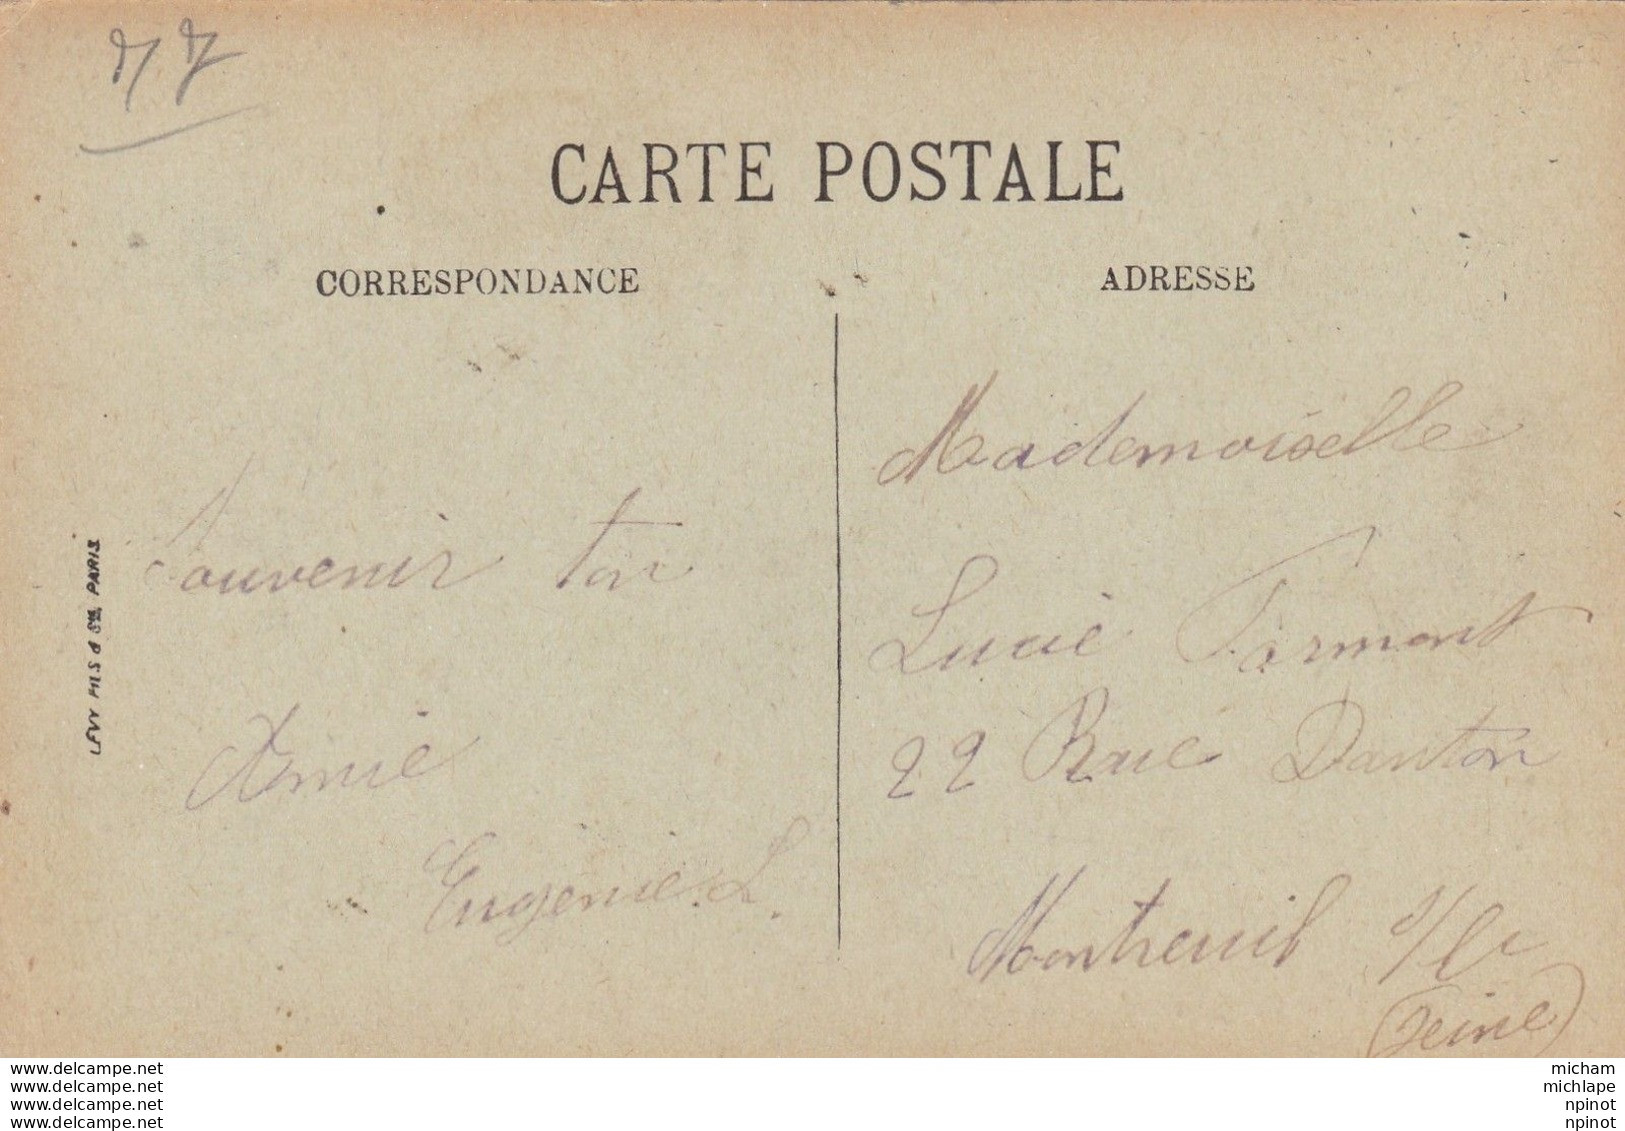 77
CARTE POSTALE
CORRESPONDANCE
ADRESSE
LEVY FILS & Cie, PARIS
Souvenir ton
Amie
Eugénie. L.
Mademoiselle
Lucie Formont
22 Rue Danton
Montreuil s/
(Seine)
www.delcampe.net
www.delcampe.net
www.delcampe.net
www.delcampe.net
micham
michlape
npinot
npinot